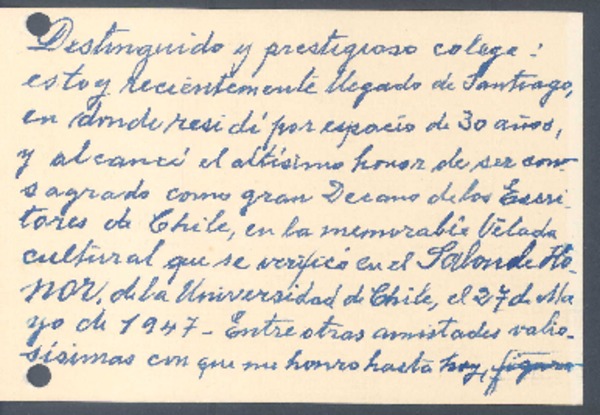 Destinguido y prestigioso colega:
estoy recientemente llegado de Santiago,
en donde residí por espacio de 30 años,
y alcancé el altísimo honor de ser con-
sagrado como gran Decano de los Escri-
tores de Chile, en la memorable Velada
cultural que se verificó en el Salon de Ho-
nor, de la Universidad de Chile, el 27 de Ma-
yo de 1947- Entre otras amistades valio-
sísimas con que me honro hasta hoy, figura